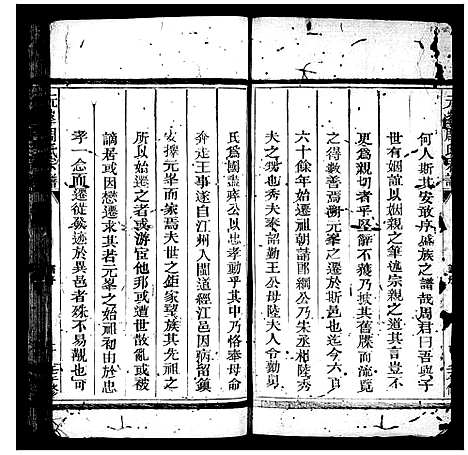 何人斯其安敢序盛族之譜哉周君曰吾與子
世有姻誼以姻親之筆述宗親之道其言豈不
更爲親切者乎堅辭不獲乃披其舊牒而流覽
之得數善焉溯元峯之遷於斯邑也迄今六百
六十餘年始遷祖朝請郎綱公乃朱丞相陸秀
夫之甥也秀夫奉詔勤王公母陸夫人令勷舅
氏爲國盡瘁公以忠孝勤乎其中乃恪奉母命
奔走王事遂自江州入閩道經江邑因病留鎮
安擇元峯而家焉夫世之鉅家望族其先祖之
所以始遷之者或游宦他邦或遭世散亂或被
謫居或因戀遷求其若元峯始祖初由於忠
孝一念而遷徙發迹於異邑者殊不易覯也可
元峯周氏宗譜